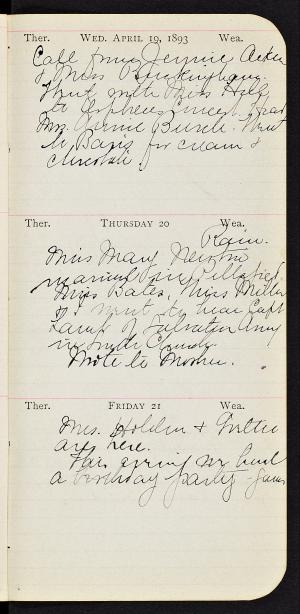 Ther. WED. APRIL 19, 1893 Wea.
Call from Jennie
& Miss Buckingham.
Went with Miss
to Orpheus Concert. Heard
Mrs. Burch. Went
to for cream &
chocolate.
Ther. THURSDAY 20 Wea.
Rain.
Miss Mary Newton
married in Pittsfield.
Miss Bates, Miss Miller
& I went to hear Capt
of Salvation Army
in Church.
Wrote to Mother.
Ther. FRIDAY 21 Wea.
Mrs. Holden &
are here.
evening we had
a birthday party